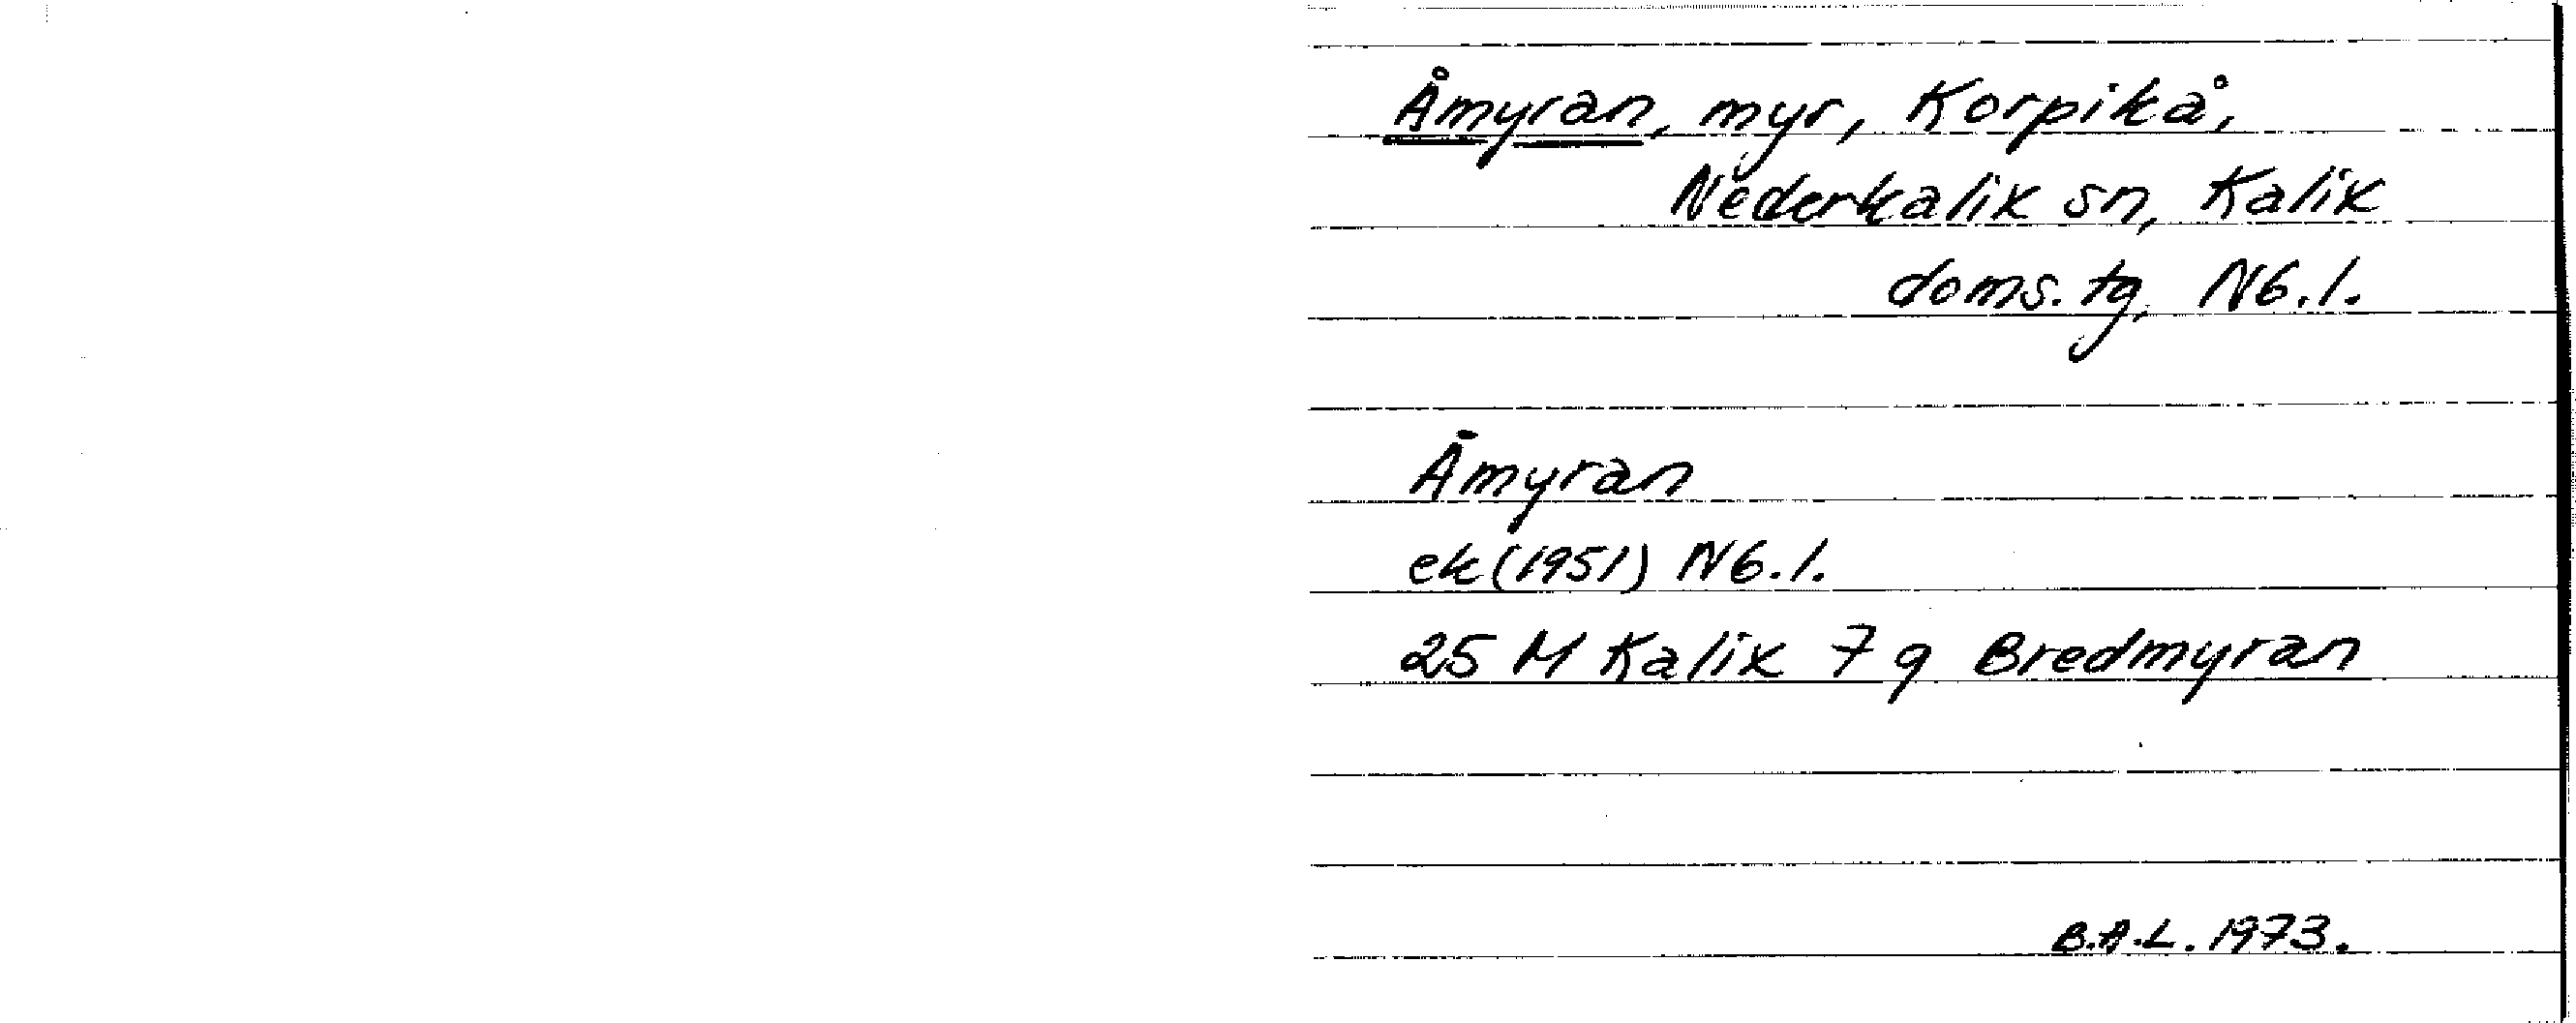 Åmyran, myr, Korpikå,
Nederkalix sn, Kalix
doms. tg, Nb.l.
Åmyran
ek (1951) Nb.l.
25 M Kalix 7 g Bredmyran
B.A.L. 1973.